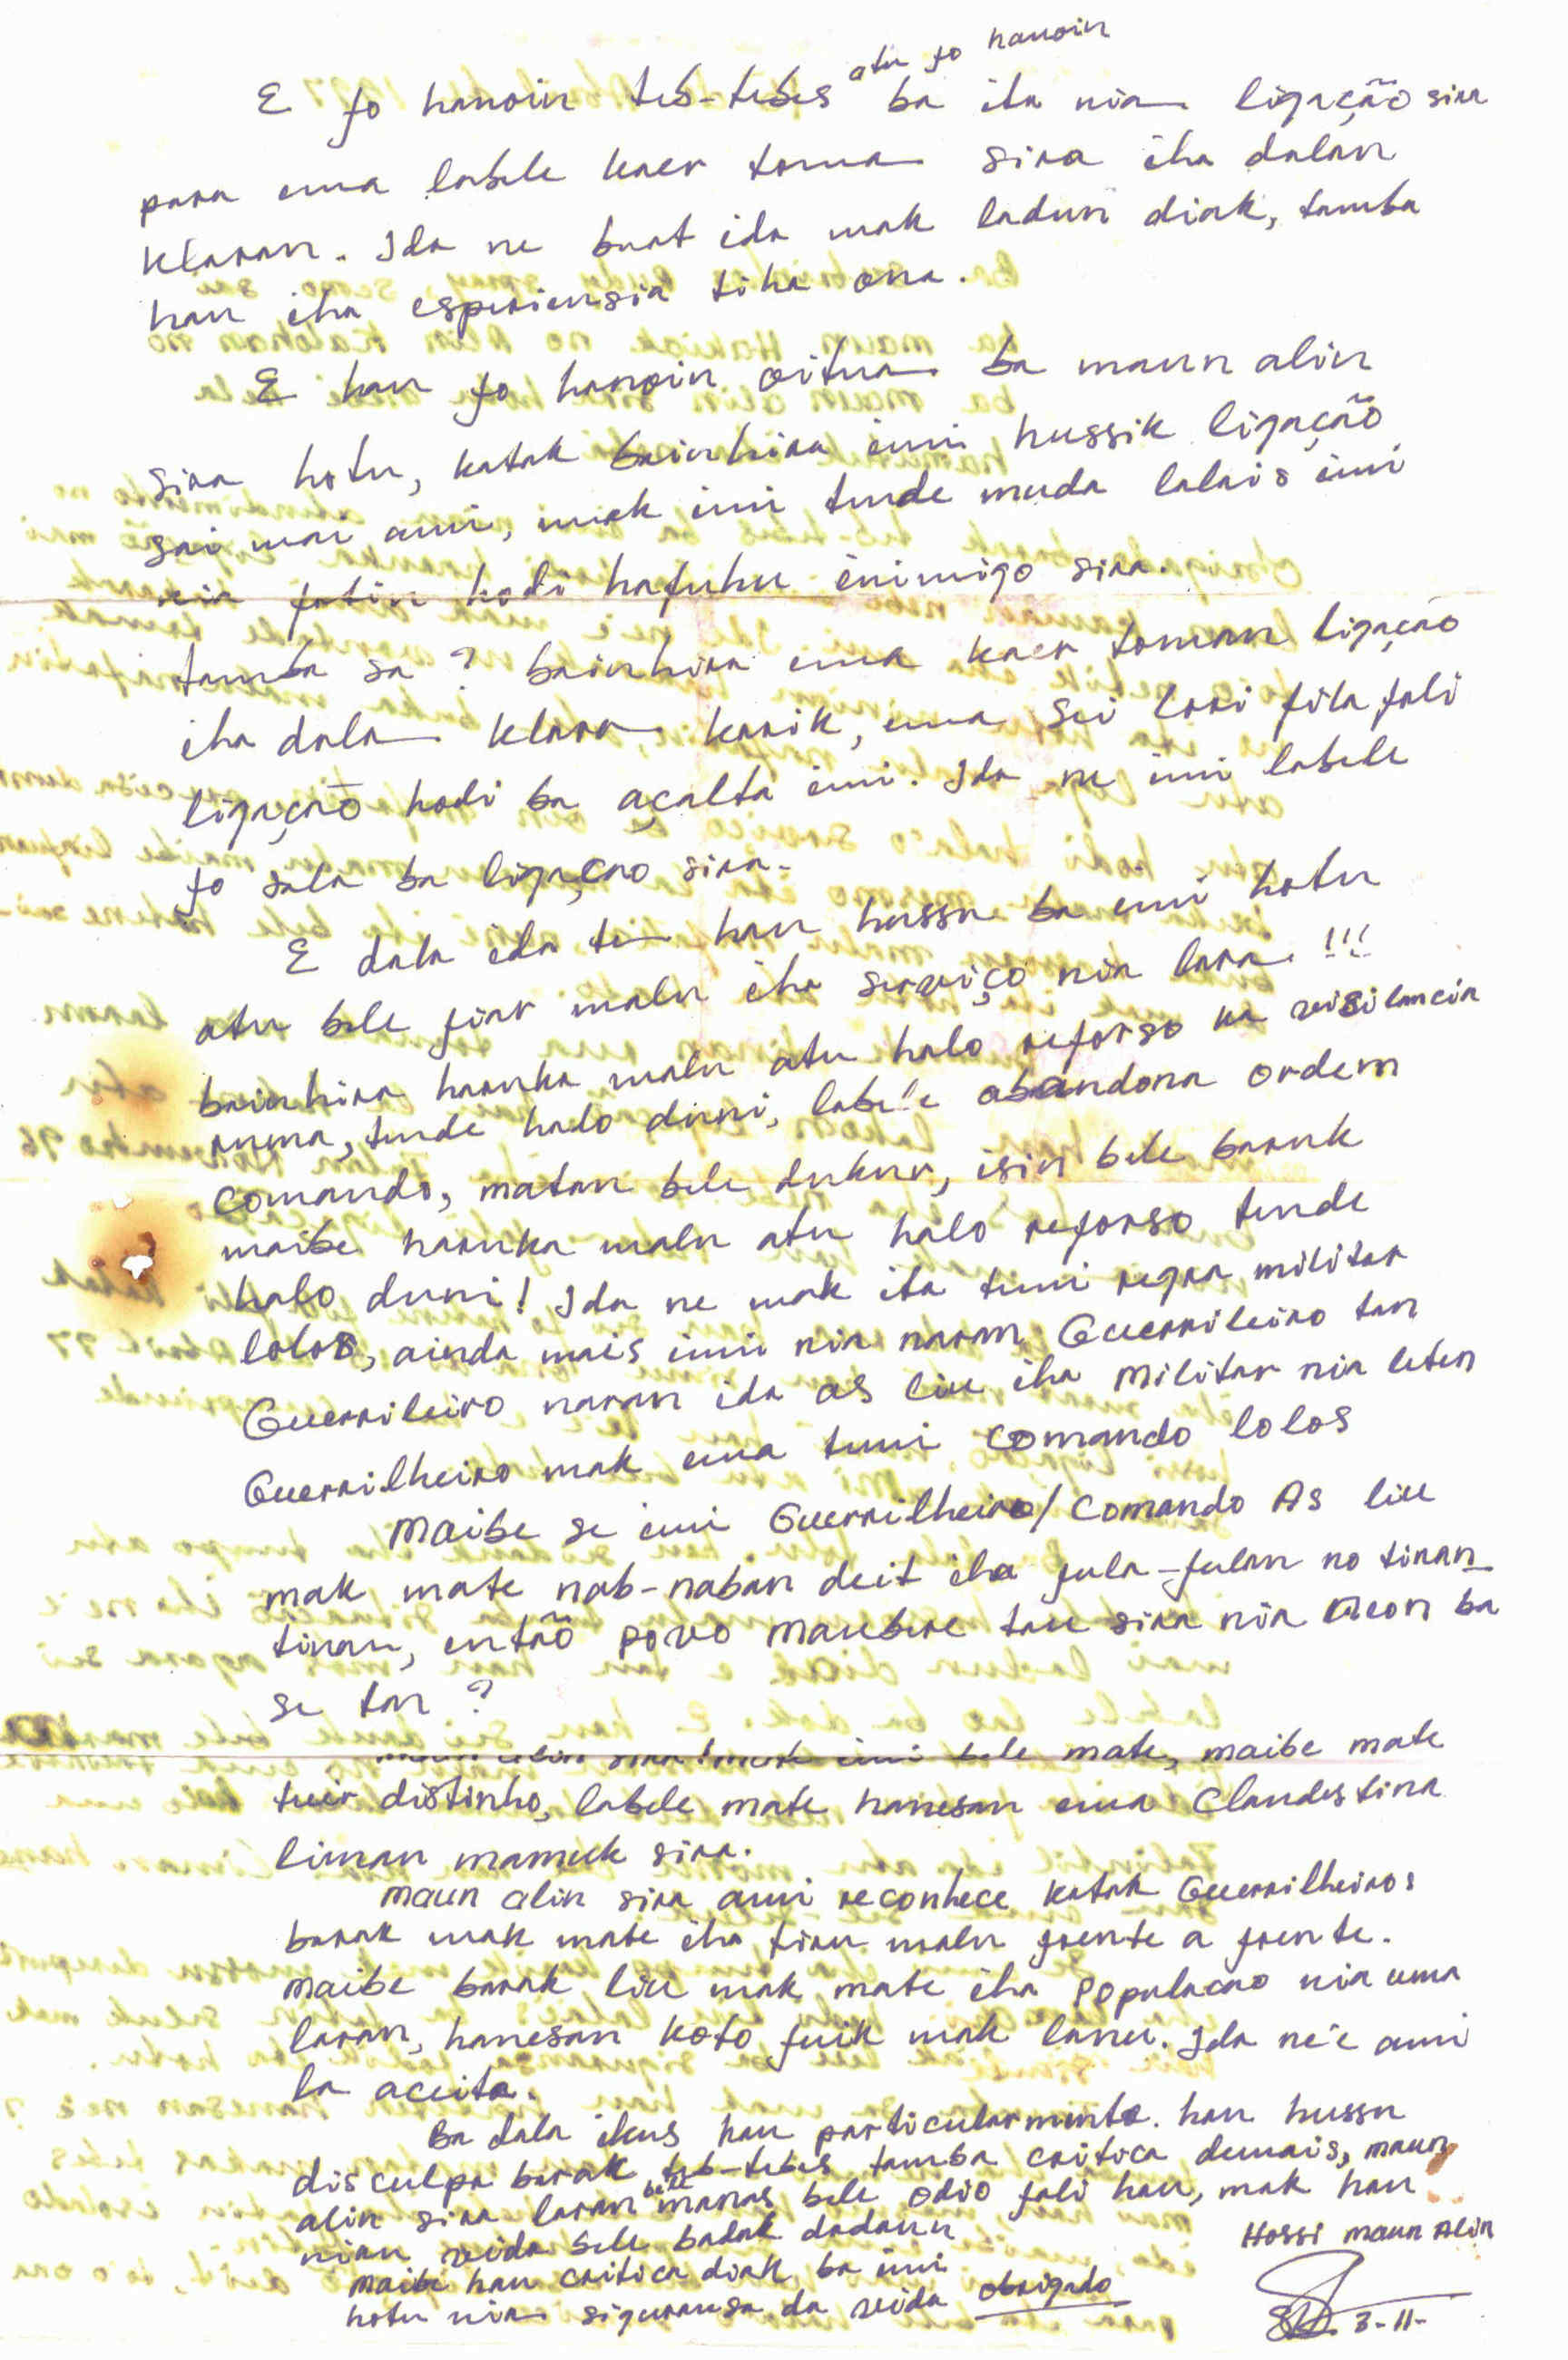 atu fo hanoin
E fo hanoin teb-tebes ba ita nia ligação sira
para ema labele kaer toma sira iha dalan
klaran. Ida ne buat ida mak ladun diak, tamba
hau iha esperiensia tiha ona.
E hau fo hanoin oitua ba maun alin
sira hotu, katak bainhira imi hussik ligação
sai mai ami, mak imi tende muda lalais imi
nia fatin hodi hafuhu inimigo sira.
tamba sa? bainhira ema kaer toman ligação
iha dala klara karik, ema sei lori fila fali
ligação hodi ba açalta imi. Ida ne imi labele
fo sala ba ligaçao sira.
E dala ida te hau hussu ba imi hotu
atu bele fiar malu iha serviço nia lara !!!
bainhira haruka malu atu halo reforso ka visilancia
ruma, tende halo duni, labele abandona ordem
comando, matan bele dukur, isin bele baruk
maibe haruka malu atu halo reforso tende
halo duni! Ida ne mak ita tuui regra militar
lolos, ainda mais imi nia naran Guerrileiro tan
Guerrileiro naran ida as liu iha Militar nia leten
Guerrilheiro mak ema tuui comando lolos
Maibe se imi Guerrilheiro/Comando As liu
mak mate nab-naban deit iha fula-fulan no tinan-
tinan, então povo maubere tau sira nia neon ba
se tan?
maun alin sira! mak imi bele mate, maibe mate
tuir distinho, labele mate hanesan ema Clandestina
liman mamuk sira.
Maun alin sira ami reconhece katak Guerrilheiros
barak mak mate iha tiru malu frente a frente.
Maibe barak liu mak mate iha Populacao nia uma
laran, hanesan koto fuik mak lanu. Ida ne'e ami
la aceita.
Ba dala ikus hau particularmente. hau hussu
disculpa barak teb-tebes tamba critica demais, maun
alin sira laran bele manas bele odio fali hau, mak hau
nian vida bele badak dadaun
maibe hau critica diak ba imi
hotu nia siguransa da vida obrigado
Hossi Maun Alin
3-11-